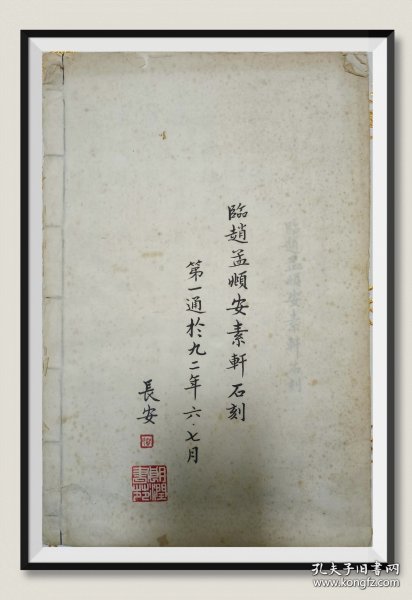 臨趙孟頫安素軒石刻
第一通於九二年六·七月
長安
孔夫子旧书网
www.kongfz.com